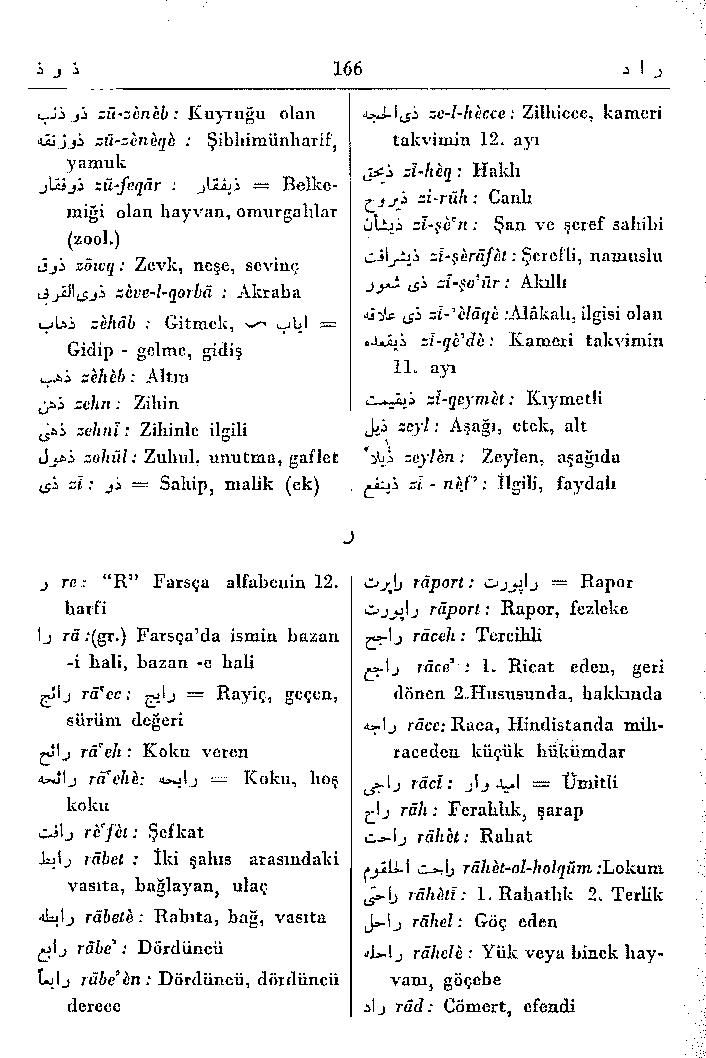 ذ و ذ 166 ر ا د
ذو ذنب zū-zènèb : Kuyruğu olan
ذوزنقه zū-zènèqè : Şibhimünharif,
yamuk
ذوفقار zū-feqār : ذیفقار = Belke-
miği olan hayvan, omurgalılar
(zool.)
ذوق zōwq : Zevk, neşe, sevinç
ذوی‌القربی zève-l-qorbā : Akraba
ذهاب zèhāb : Gitmek, ایاب ـــ =
Gidip - gelme, gidiş
ذهب zèhèb : Altın
ذهن zehn : Zihin
ذهنی zehnī : Zihinle ilgili
ذهول zohūl : Zuhul, unutma, gaflet
ذی zī : ذو = Sahip, malik (ek)
ذی‌الحجه ze-l-hècce : Zilhicce, kameri
takvimin 12. ayı
ذیحق zī-hèq : Haklı
ذیروح zi-rūh : Canlı
ذیشأن zī-şè'n : Şan ve şeref sahibi
ذیشرافت zī-şèrāfèt : Şerefli, namuslu
ذی شعور zī-şo'ūr : Akıllı
ذی علاقه zī-'èlāqè :Alâkalı, ilgisi olan
ذیقعده zī-qè'dè : Kameri takvimin
11. ayı
ذیقیمت zī-qeymèt : Kıymetli
ذیل zeyl : Aşağı, etek, alt
ذیلاً zeylèn : Zeylen, aşağıda
ذینفع zī - nèf' : İlgili, faydalı
ر
ر re : “R” Farsça alfabenin 12.
harfi
را rā :(gr.) Farsça'da ismin bazan
-i hali, bazan -e hali
رائج rā'ec : رایج = Rayiç, geçen,
sürüm değeri
رائح rā'eh : Koku veren
رائحه rā'ehè: رایحه = Koku, hoş
koku
رأفت rè'fèt : Şefkat
رابط rābet : İki şahıs arasındaki
vasıta, bağlayan, ulaç
رابطه rābetè : Rabıta, bağ, vasıta
رابع rābe' : Dördüncü
رابعاً rābe'èn : Dördüncü, dördüncü
derece
راپرت rāport : راپورت = Rapor
راپورت rāport : Rapor, fezleke
راجح rāceh : Tercihli
راجع rāce' : 1. Ricat eden, geri
dönen 2. Hususunda, hakkında
راجه rāce: Raca, Hindistanda mih-
raceden küçük hükümdar
راجی rācī : امید وار = Ümitli
راح rāh : Ferahlık, şarap
راحت rāhèt : Rahat
راحت الحلقوم rāhèt-ol-holqūm :Lokum
راحتی rāhètī : 1. Rahatlık 2. Terlik
راحل rāhel : Göç eden
راحله rāhelè : Yük veya binek hay-
vanı, göçebe
راد rād : Cömert, efendi